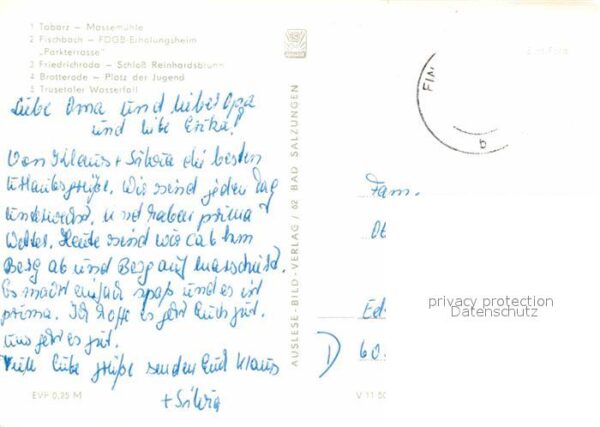 1 Tabarz – Massemühle
2 Fischbach – FDGB-Erholungsheim
„Parkterrasse"
3 Friedrichroda – Schloß Reinhardsbrunn
4 Brotterode – Platz der Jugend
5 Trusetaler Wasserfall
Liebe Oma und lieber Opa
und liebe Erika!
Von Klaus + Silvia die besten
Urlaubsgrüße. Wir sind jeden Tag
unterwegs. und haben prima
Wetter. Heute sind wir ca 6 km
Berg ab und Berg auf marschiert.
Es macht einfach spaß und es ist
prima. Ich hoffe es geht Euch gut.
uns geht es gut.
Viele liebe grüße senden Euch Klaus
+ Silvia
EVP 0,25 M
AUSLESE-BILD-VERLAG / 62 BAD SALZUNGEN
V 11 50
FIN
b
Fam.
privacy protection
Datenschutz
60